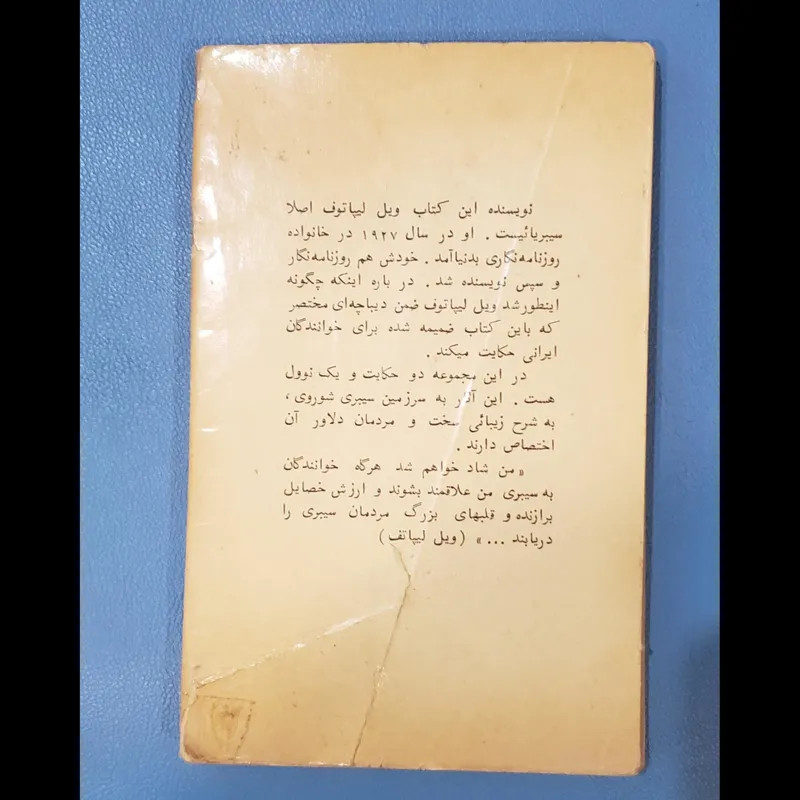 نویسنده این کتاب ویل لیپاتوف اصلا
سیبریائیست . او در سال ۱۹۲۷ در خانواده
روزنامه‌نگاری بدنیاآمد . خودش هم روزنامه‌نگار
و سپس نویسنده شد . در باره اینکه چگونه
اینطورشد ویل لیپاتوف ضمن دیباچه‌ای مختصر
که باین کتاب ضمیمه شده برای خوانندگان
ایرانی حکایت میکند .
در این مجموعه دو حکایت و یک نوول
هست . این آثار به سرزمین سیبری شوروی ،
به شرح زیبائی سخت و مردمان دلاور آن
اختصاص دارند .
« من شاد خواهم شد هرگاه خوانندگان
به سیبری من علاقمند بشوند و ارزش خصایل
برازنده و قلبهای بزرگ مردمان سیبری را
دریابند ... » (ویل لیپاتف)